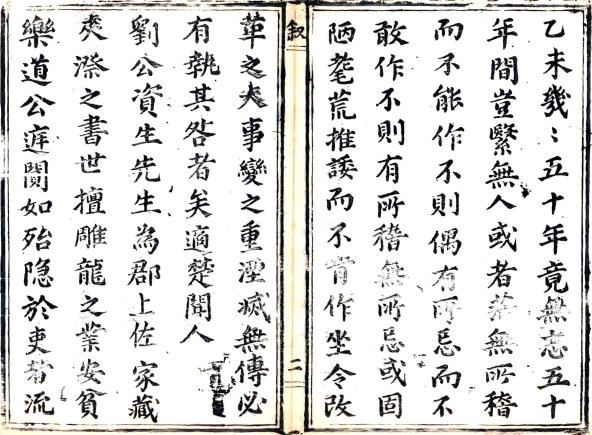 乙未幾〻五十年竟無志五十
年間豈繄無人或者無所稽
而不能作不則偶有所忌而不
敢作不則有所稽無所忌或固
陋耄荒推諉而不肯作坐令改
敘
二
革之大事變之重湮滅無傳必
有執其咎者矣適楚聞人
劉公資生先生為郡上佐家藏
夾漈之書世擅雕龍之業安貧
樂道公庭闃如殆隐於吏者流